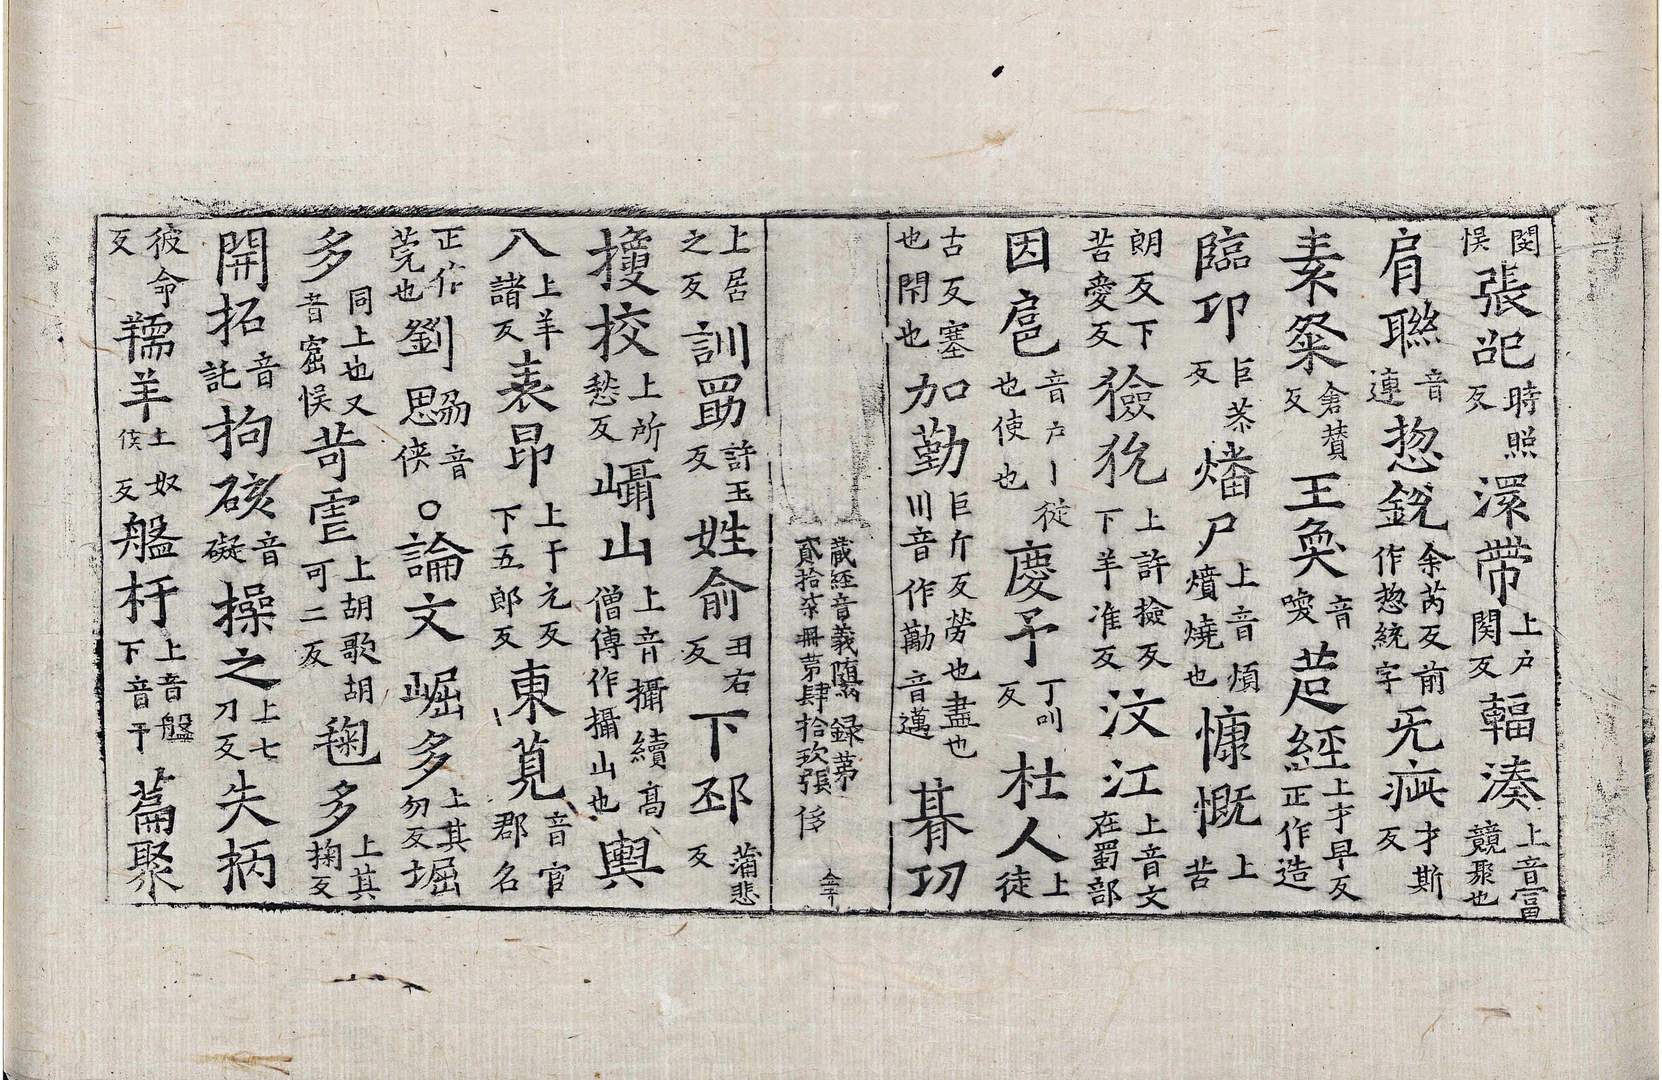 閔悮張巶時照反澴帶上户関反輻湊上音冨競聚也
肩聯音連惣銳余芮反前作惣統字旡疵才斯反
素粲倉賛反王奐音喚䓝經上才早反正作造
臨邛巨恭反燔尸上音煩燌燒也慷慨上苦
朗反下苦愛反獫狁上許撿反下羊准反汶江上音文在蜀部
因扈音户丨從也使也慶予丁叫反杜人上徒
古反塞也閇也加勤巨斤反勞也盡也川音作勱音邁朞功
藏經音義隨函録第貳拾柒冊第肆拾玖張
上居之反訓勗許玉反姓俞丑右反下邳蒲悲反
摱校上所愁反㠎山上音攝續高僧傳作攝山也輿
八上羊諸反袁昂上干元反下五郎反東莧音官郡名
正作莞也劉思勰音侠○論文崛多上其勿反堀
多同上也又音窟悮苛雲上胡歌胡可二反毱多上其掬反
開拓音託拘硋音礙操之上七刀反失柄
彼命反羺羊上奴侯反盤杅上音盤下音干篇聚